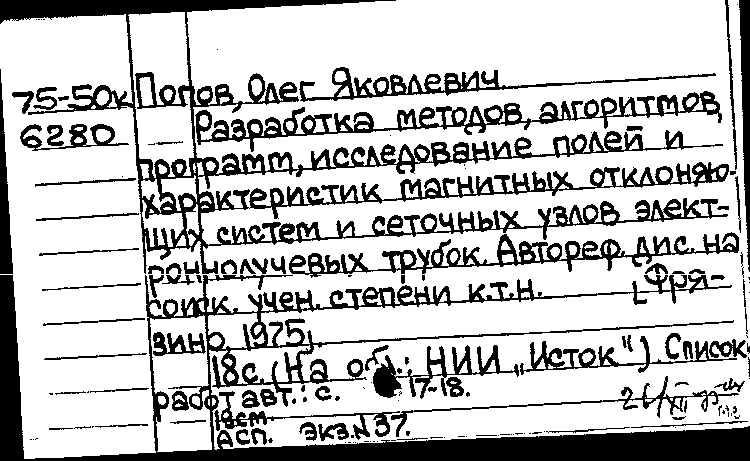 75-50к Попов, Олег Яковлевич.
6280 Разработка методов, алгоритмов,
программ, исследование полей и
характеристик магнитных отклоняю-
щих систем и сеточных узлов элект-
роннолучевых трубок. Автореф. дис. на
соиск. учен. степени к.т.н. [Фря-
зино, 1975].
18с. (На обл.: НИИ „Исток"). Список
работ авт.: с. 17-18.
АСП. Экз.N37.